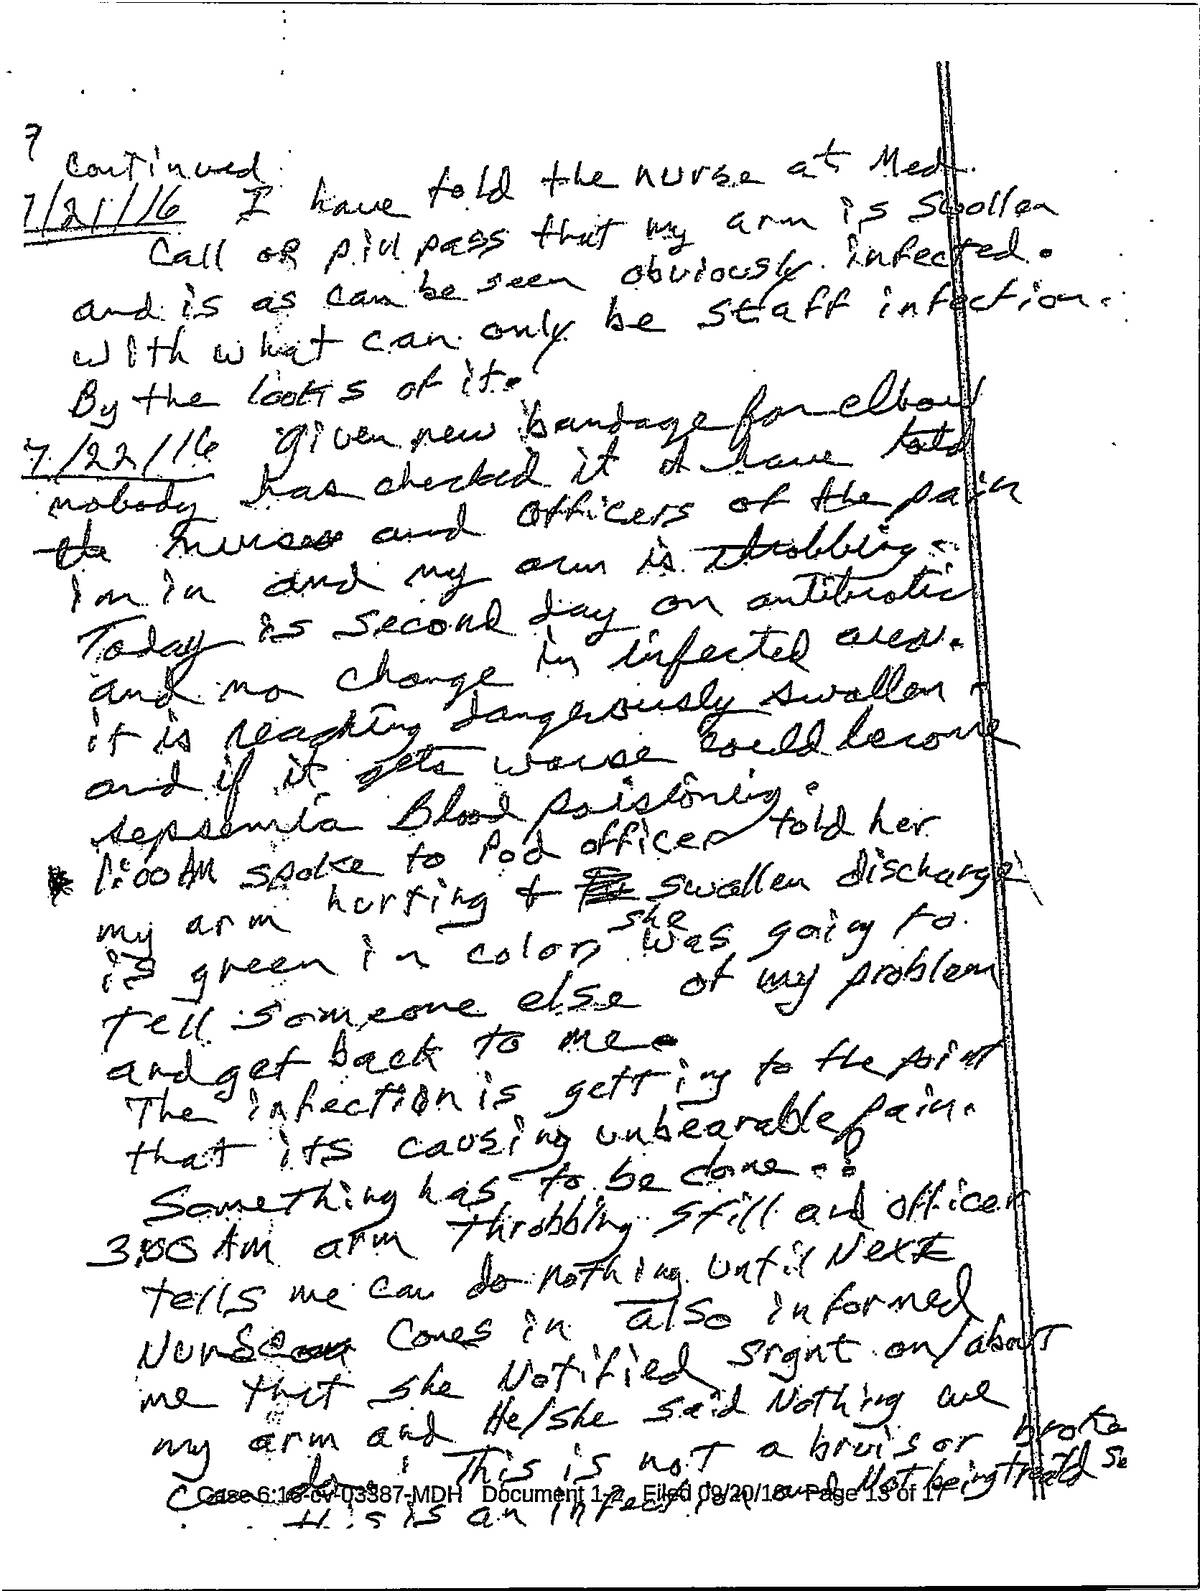 7
Continued
7/21/16 I have told the nurse at Med.
Call or pill pass that my arm is swollen
and is as can be seen obviously infected.
with what can only be staff infection.
By the looks of it.
7/22/16 given new bandage for elbow
nobody has checked it I have told
the nurses and officers of the pain
im in and my arm is throbbing.
Today is second day on antibiotic
and no change in infected area.
it is reaching dangerously swollen
and if it gets worse could become
sepsemia Blood poistoning.
1:00AM spoke to Pod officer told her
my arm hurting & swollen discharge
is green in color, she was going to
tell someone else of my problem
and get back to me.
The infection is getting to the point
that its causing unbearable pain.
Something has to be done.
3:00 AM arm throbbing still and officer
tells me can do nothing until Next
Nurse comes in also informed
me that she Notified Srgnt on/about
my arm and He/she said Nothing we
can do! This is not a bruis or broke
This is an infection and Not being treatd
Case 6:18-cv-03387-MDH Document 1-2 Filed 09/20/18 Page 13 of 17